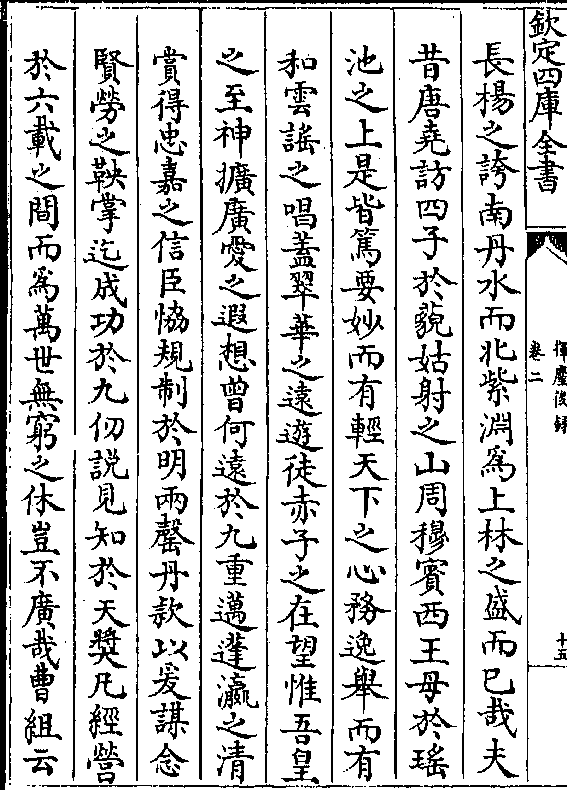 欽定四庫全書
揮麈後録
卷二
十五
長楊之誇南丹水而北紫淵為上林之盛而已哉夫
昔唐堯訪四子於藐姑射之山周穆賓西王母於瑤
池之上是皆篤要妙而有輕天下之心務逸舉而有
和雲謡之唱蓋翠華之逺遊徒赤子之在望惟吾皇
之至神擴廣愛之遐想曾何逺於九重邁蓬瀛之清
賞得忠嘉之信臣恊規制於明兩罄丹款以爰謀念
賢勞之鞅掌迄成功於九仞説見知於天奬凡經營
於六載之間而為萬世無窮之休豈不廣哉曹組云